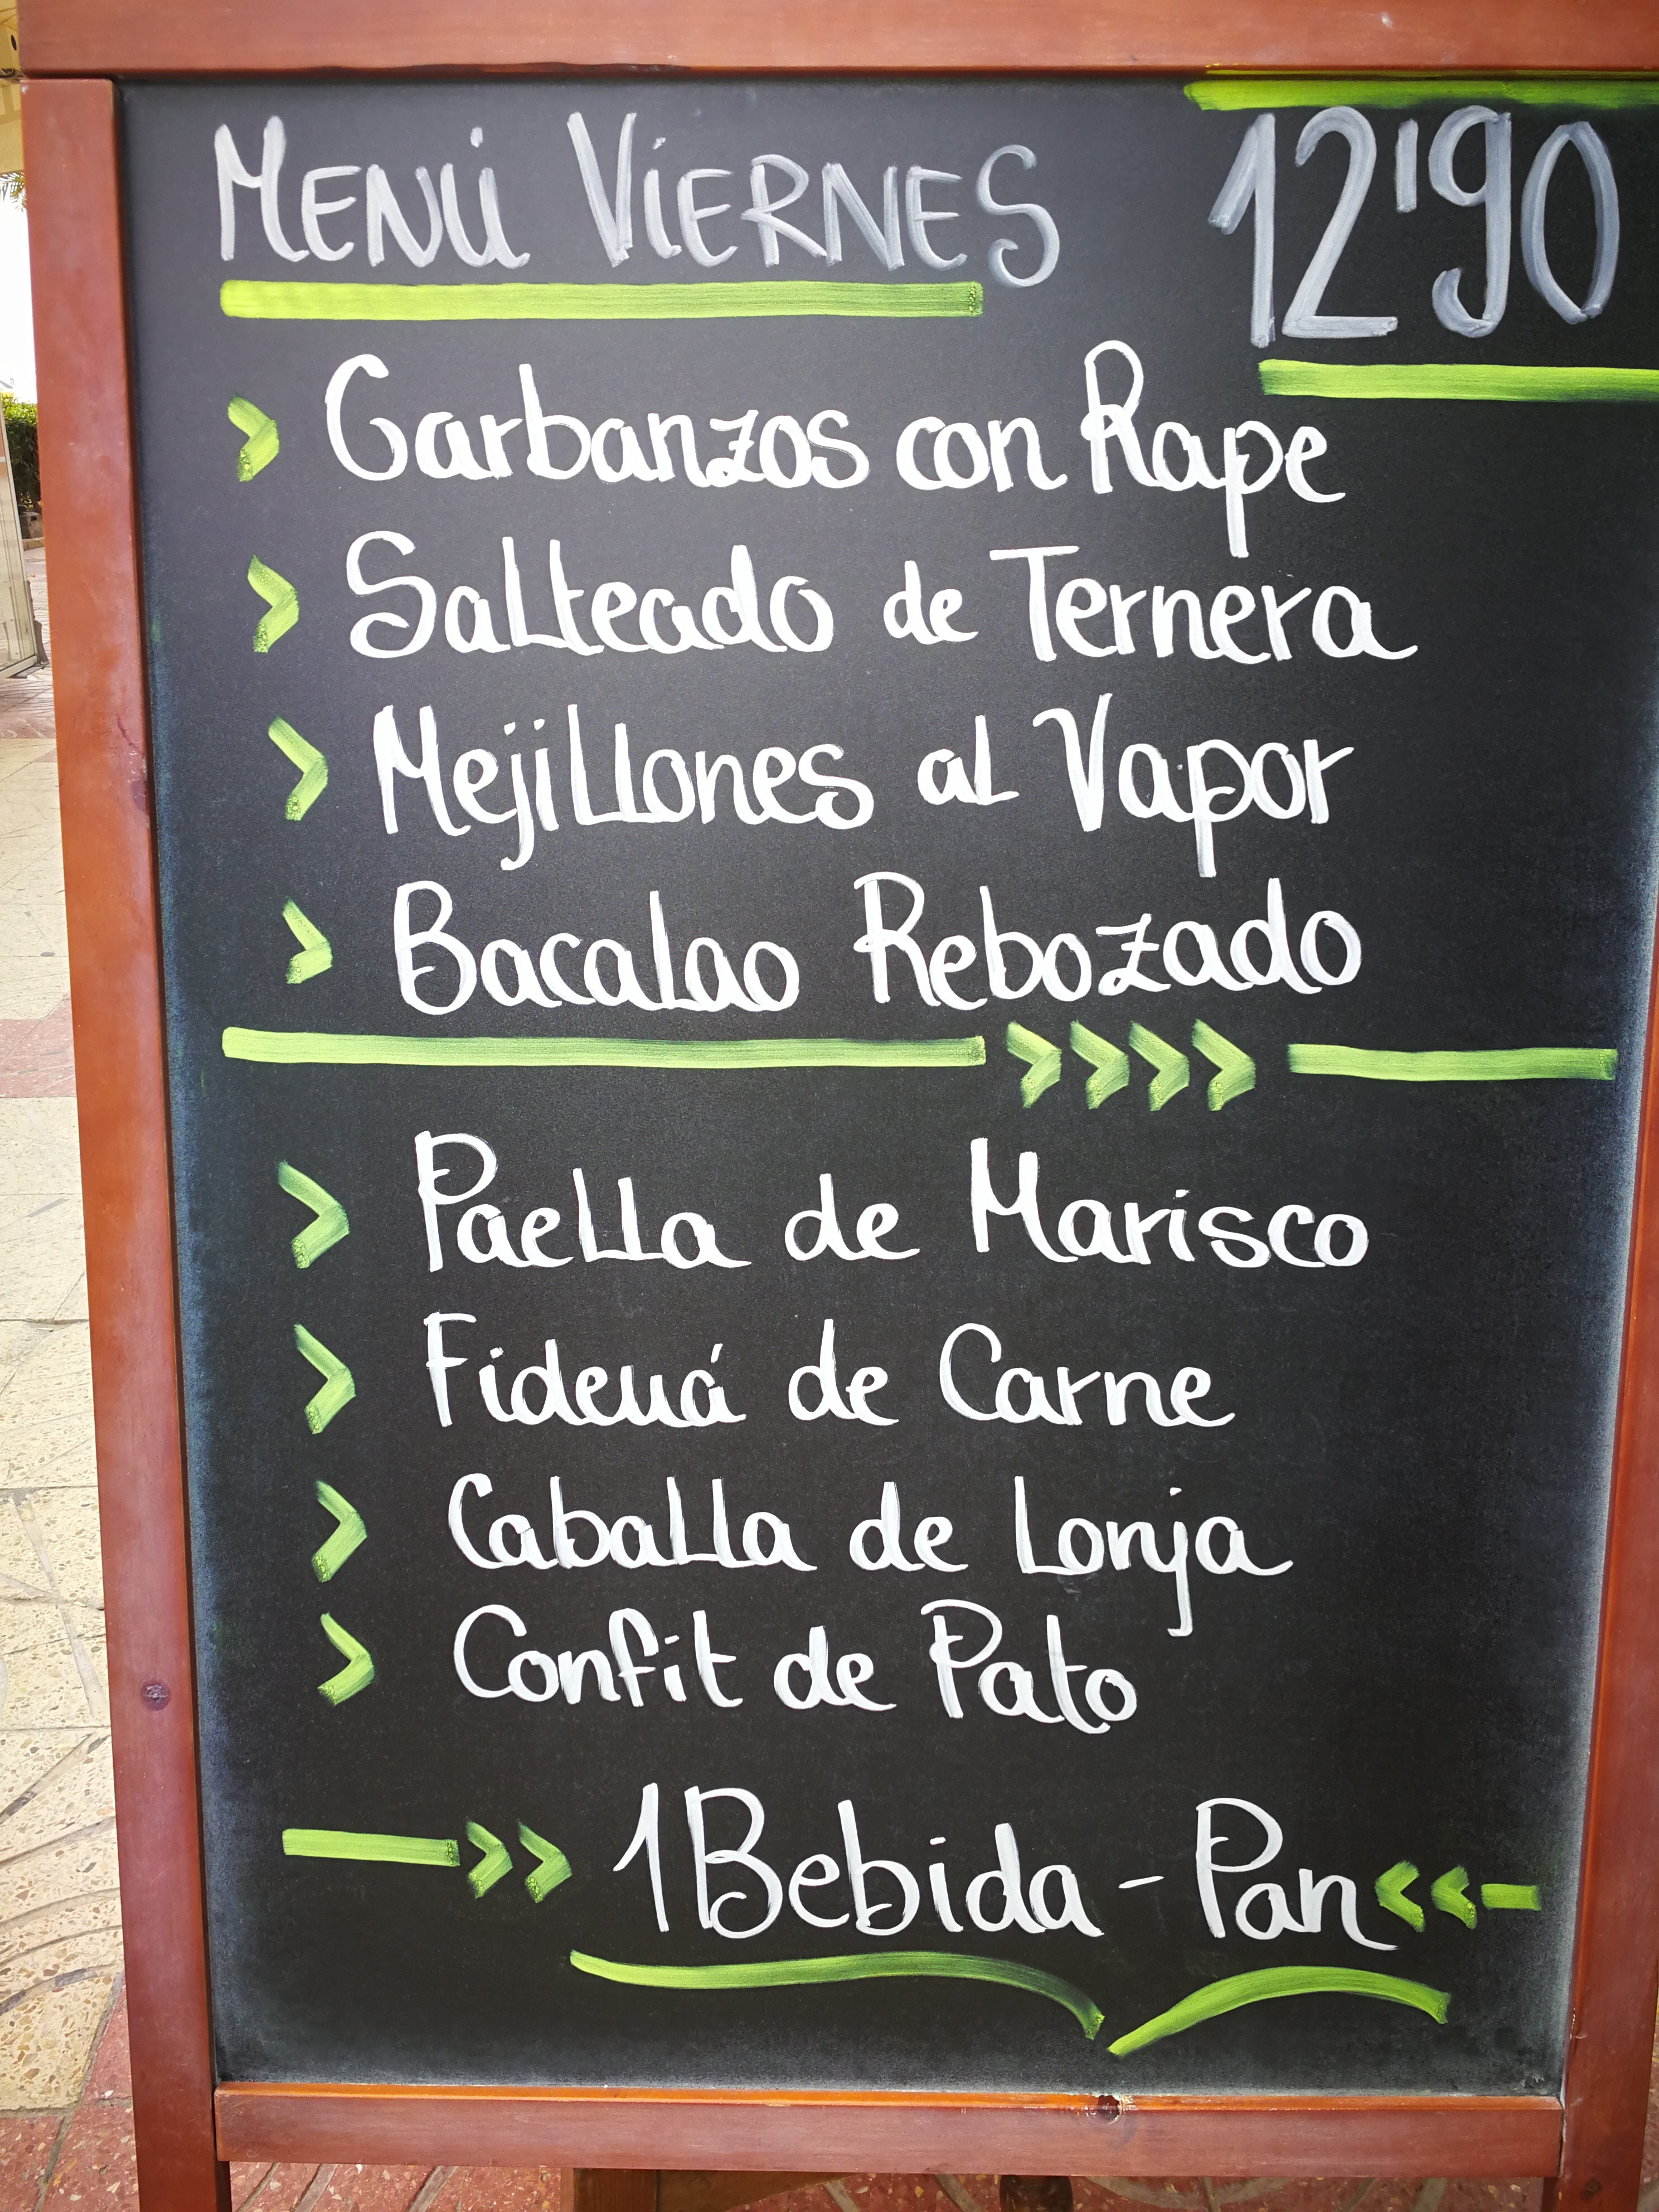 MENú ViERNES 12'90
Garbanzos con Rape
Salteado de Ternera
Mejillones al Vapor
Bacalao Rebozado
Paella de Marisco
Fideuá de Carne
Caballa de Lonja
Confit de Pato
1 Bebida - Pan